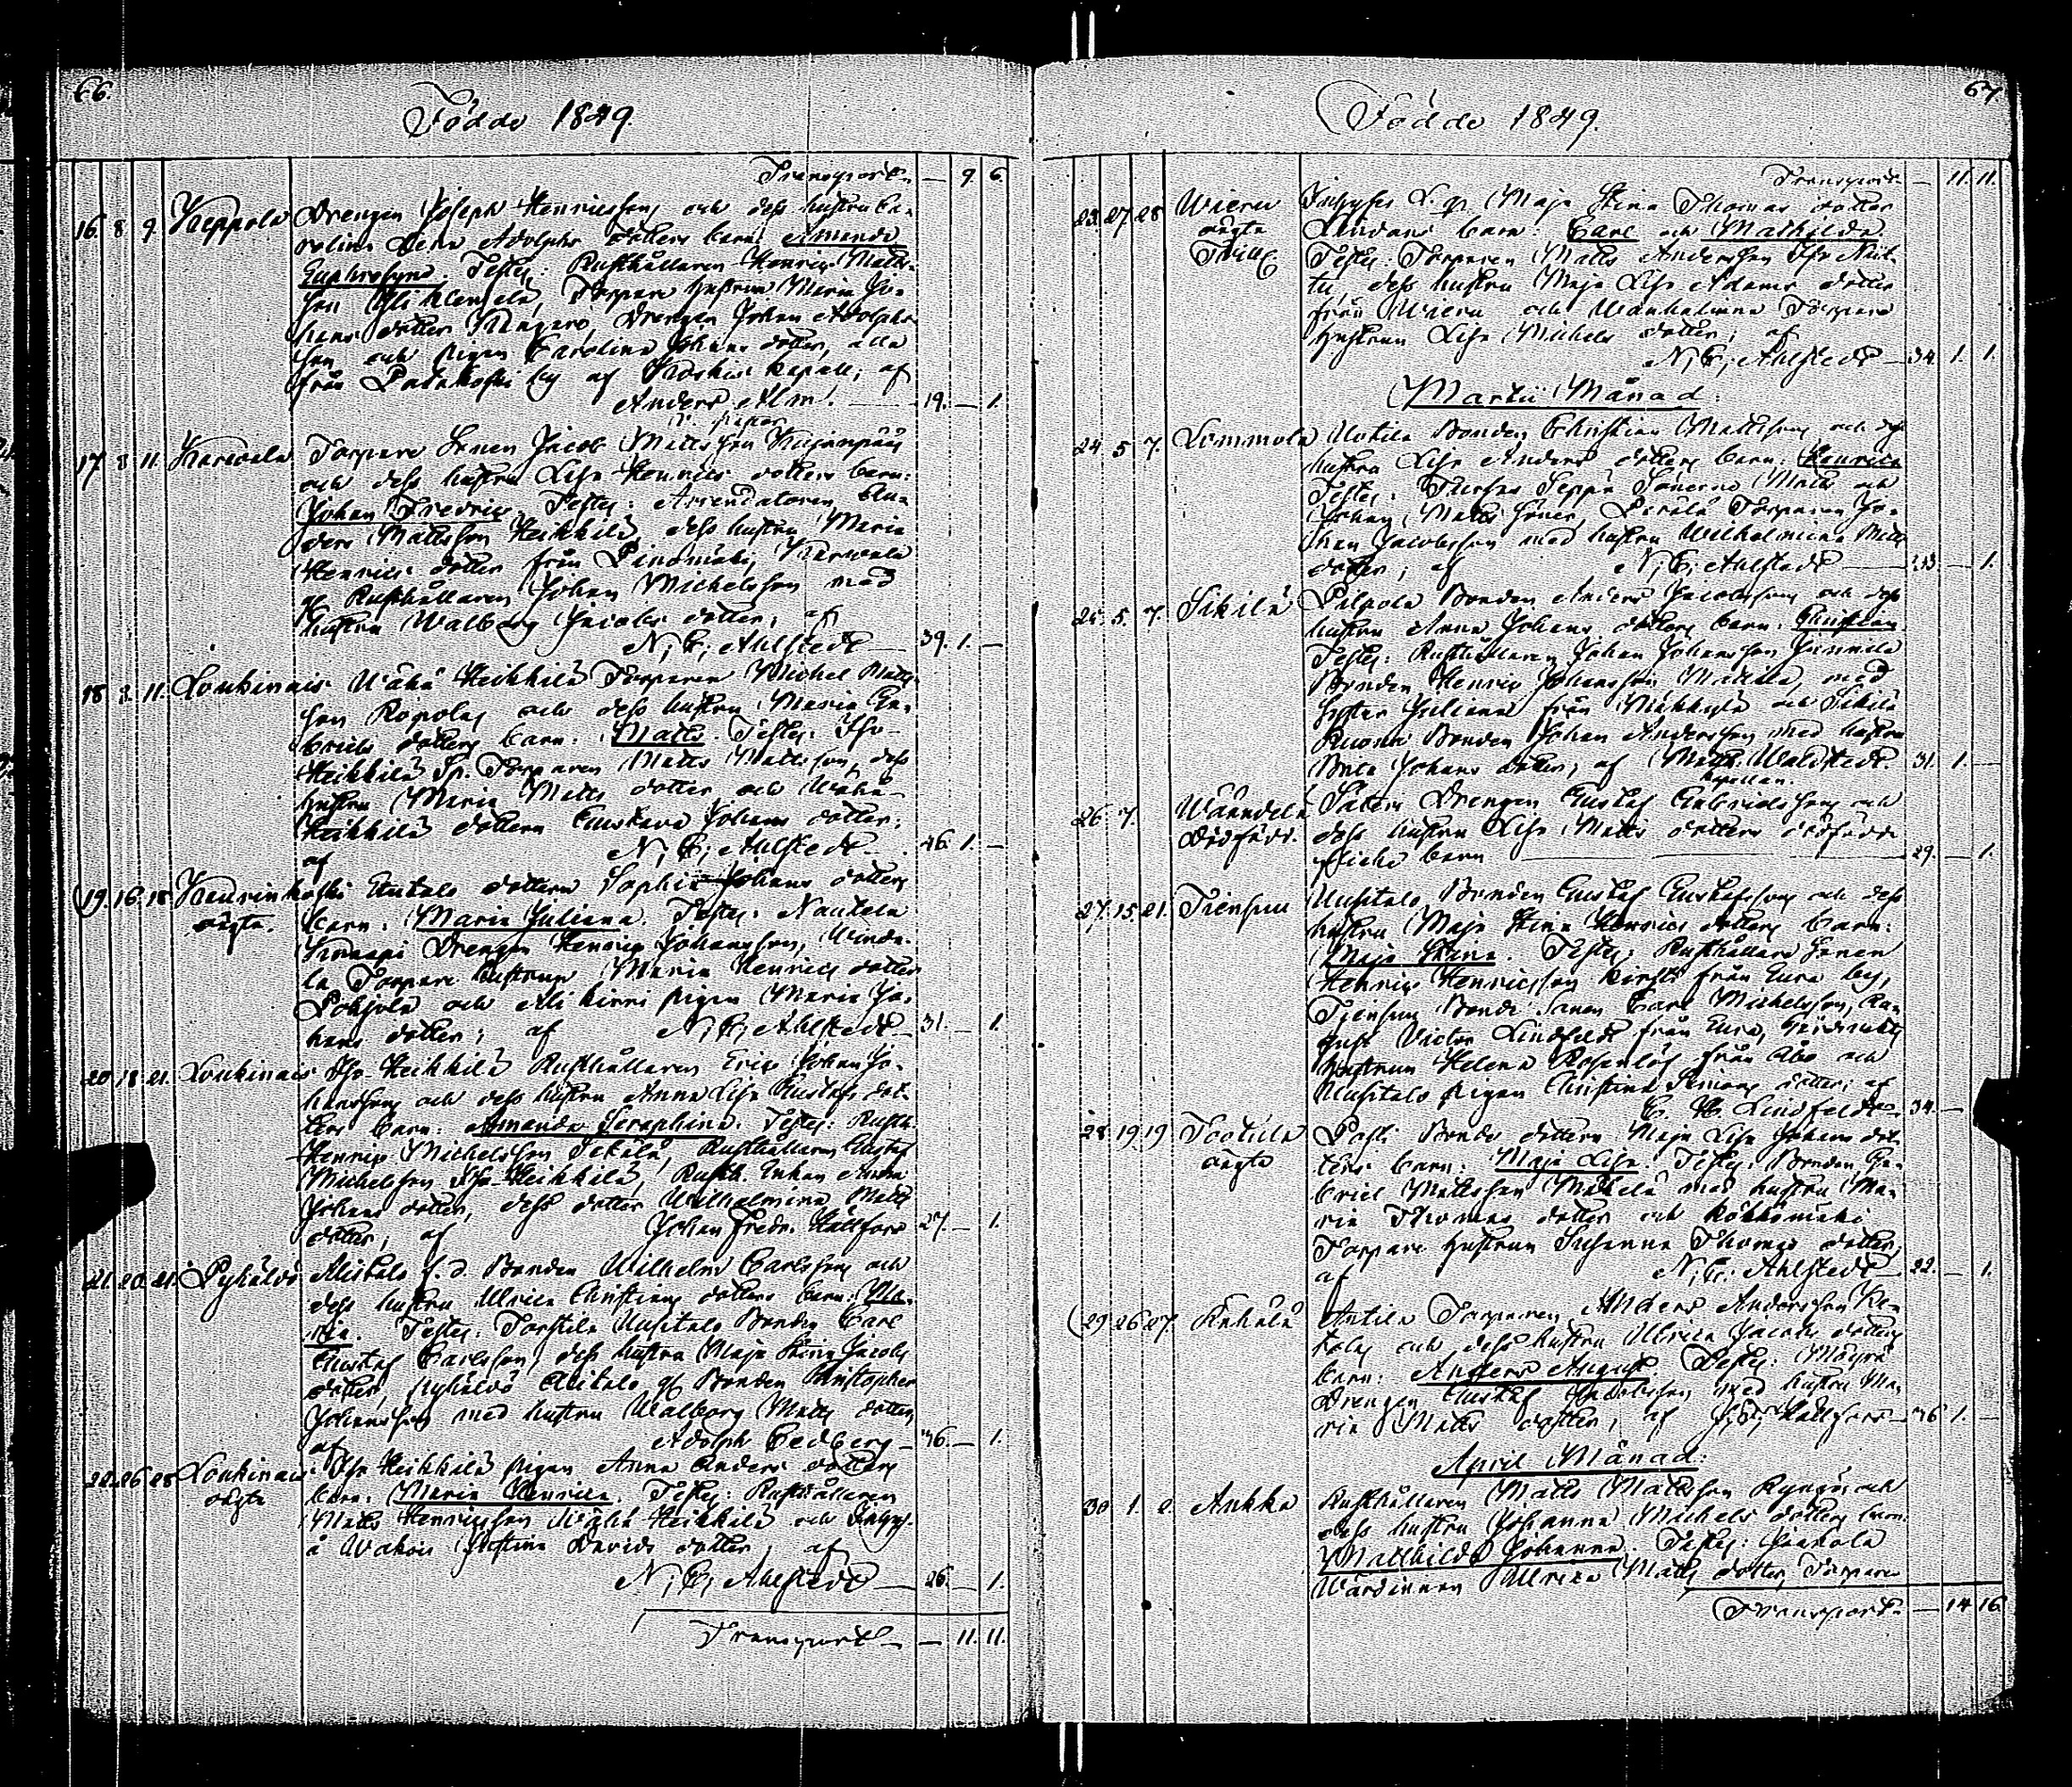 66.
Födde 1849.
Transport — 9 6
16. 8 9. Keppola Drengen Joseph Henricsson och dess hustru Ca-
rolina Lena Adolphs dotters barn: Amanda
Euphrosyne. Testes: Rusthållaren Henric Matts-
son, Torpare hustrun Maria Jo-
hans dotter, Drengen Johan Adolphs-
son och pigan Carolina Johans dotter, alla
från by af kapell; af
Anders Alm. 19. — 1.
17 8 11. Karwala Torpare Sonen Jacob Mattsson
och dess hustru Lisa Henrics dotters barn:
Johan Fredric. Testes: Arrendatoren An-
ders Mattsson Heikkilä, dess hustru Maria
Henrics dotter från, Karwala
Rusthållaren Johan Michelsson med
hustru Walborg Jacobs dotter; af
N, C, Ahlstedt — 39. 1. —
18 8. 11. Loukinais Wähä Heikkilä Torparen Michel Matts-
son och dess hustru Maria Ga-
briels dotters barn: Matts. Testes: Iso-
Heikkilä Torparen Matts Mattsson, dess
hustru Maria Matts dotter och Wähä-
Heikkilä dottern Gustava Johans dotter;
af N, C, Ahlstedt — 46. 1. —
19. 16. 18 dottern Sophia Johans dotters
oägta. barn: Maria Juliana. Testes: Nautela
Drengen Henric Johansson,
la Torpare hustrun Maria Henrics dotter
Pohjola och pigan Maria Jo-
hans dotter; af N, C, Ahlstedt — 31. — 1.
20 18 21. Loukinais Iso-Heikkilä Rusthållaren Eric Johan Jo-
hansson och dess hustru Anna Lisa Gustafs dot-
ters barn: Amanda Seraphina. Testes: Rusth.
Henric Michelsson, Rusthållaren Gustaf
Michelsson Iso-Heikkilä, Rusth. Enkan Anna
Johans dotter, dess dotter Wilhelmina Matts
dotter; af Johan Fredr. Hällfors 27. — 1.
21. 20. 21. Pyhälös f. d. Bonden Wilhelm Carlsson och
dess hustru Ulrica Christians dotters barn: Ma-
ria. Testes: Uusitalo Bonden Carl
Gustaf Carlsson, dess hustru Maja Stina Jacobs
dotter, Bonden Christopher
Johansson med hustru Walborg Matts dotter;
af Adolph Cedberg — 36. — 1.
22. 26 28 Loukinais Iso Heikkilä pigan Anna Anders dotters
oägta barn: Maria Henrica. Testes: Rusthållaren
Matts Henricsson Heikkilä och
Justina Davids dotter; af
N, C, Ahlstedt — 26. — 1.
Transport — 11. 11.
67
Födde 1849.
Transport — 11. 11.
23. 27 28 Wieru Maja Stina Thomas dotter
oägta Lindans barn: Carl och Mathilda
Tvill. Testes: Torparen Matts Andersson
dess hustru Maja Lisa Adams dotter
från Wieru och Torpare
hustrun Lisa Michels dotter; af
N, C, Ahlstedt — 34 1. 1.
Martii Månad.
24 5 7. Lemmola Uotila Bonden Christian Mattsson och dess
hustru Lisa Anders dotters barn: Henrica
Testes: Seppä Sönerna Matts och
Johan Matts söner, Torparen Jo-
han Jacobsson med hustru Wilhelmina Matts
dotter; af N, C, Ahlstedt — 33. — 1.
25. 5. 7. Sikilä Pilpola Bonden Anders Jacobsson och dess
hustru Anna Johans dotters barn: Christian
Testes: Rusthållaren Johan Johansson Junnila
Bonden Henric Johansson, med
Syster Juliana från och Sikilä
Bonden Johan Andersson med hustru
Brita Johans dotter; af Matth. Waldstedt. 31. 1. —
Kapellan.
26. 7. Wäändelä Säteri Drengen Gustaf Gabrielsson och
Dödfödt. dess hustru Lisa Matts dotters dödfödde
flicke barn — 29. — 1.
27. 15 21. Tiensuu Uusitalo Bonden Gustaf Gustafsson och dess
hustru Maja Stina Henrics dotters barn:
Maja Stina. Testes: Rusthållare Sonen
Henric Henricsson från Eura by,
Tiensuu Bonde Sonen Carl Michelsson,
Victor Lindfeldt från Eura,
hustrun Helena Rosenlöf från Åbo och
Uusitalo pigan Christina Simons dotter; af
C. H. Lindfeldt — 34. —
28. 19 19 Tootila Pósti Bonde dottern Maja Lisa Johans dot-
oägta ters barn: Maja Lisa. Testes: Bonden Ga-
briel Mattsson Mäkelä med hustru Ma-
ria Thomas dotter och
Torpare hustrun Susanna Thomas dotter;
af N, C, Ahlstedt — 22. — 1.
29. 26 27. Kahala Antila Torparen Anders Andersson
och dess hustru Ulrica Jacobs dotters
barn: Anders August. Testes: Mäyrä
Drengen Gustaf Jacobsson med hustru Ma-
ria Matts dotter; af J, F, Hällfors — 36 1. —
April Månad.
30 1. 2. Ankka Rusthållaren Matts Mattsson och
dess hustru Johanna Michels dotters barn:
Mathilda Johanna. Testes:
Wärdinnan Ulrica Matts dotter, Torpare
Transport — 14 16